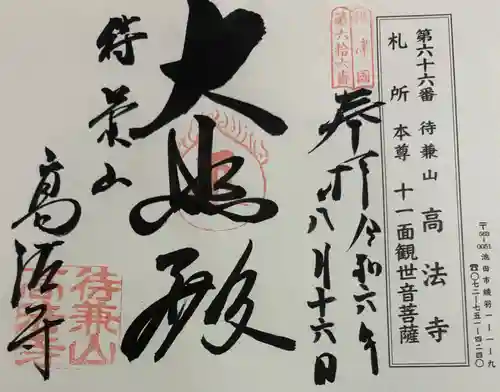 〒563-0051 池田市綾羽一-一-九
☎〇七二-七五一-四二四〇
第六十六番 待兼山 高法寺
札所 本尊 十一面観世音菩薩
摂津國
第六拾六番
奉拝 令和六年
八月十六日
大悲殿
待兼山
高法寺
待兼山
高法寺